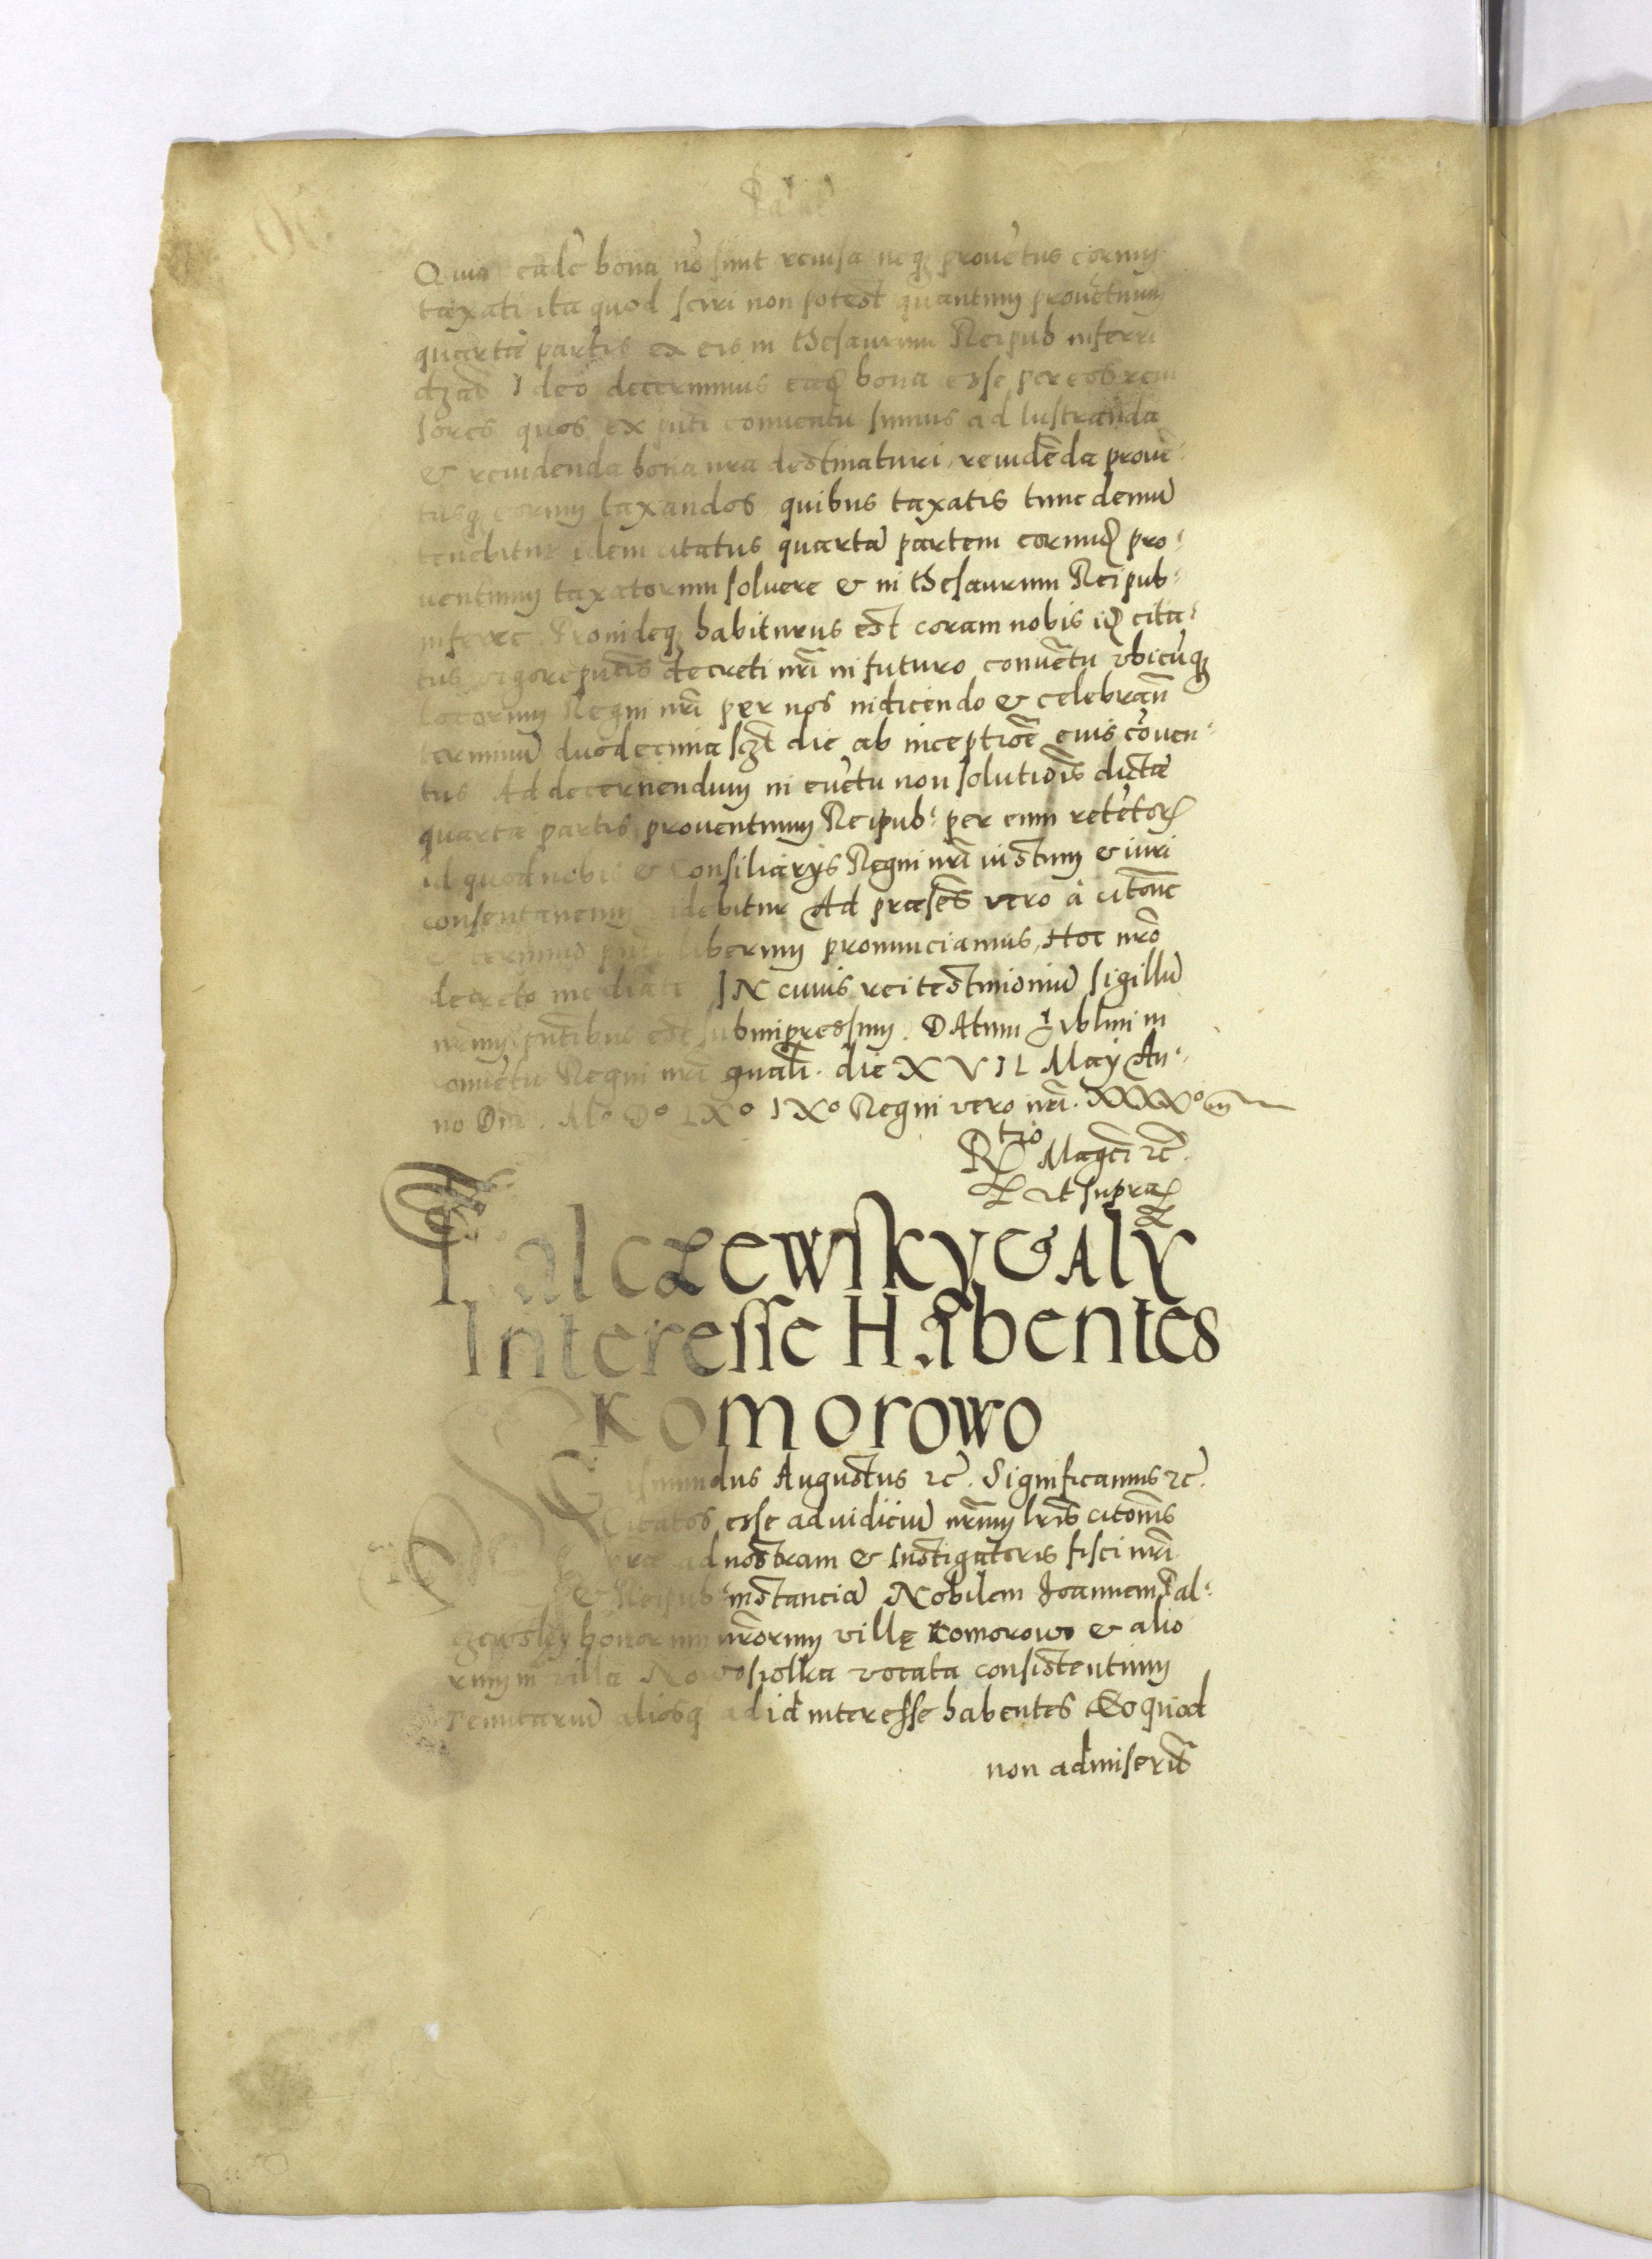 Quia eadē bona nō sunt reuisa neq prouētus eorum
taxati ita quod sciri non potest quantum prouētuum
quartæ partis ex eis in thesaurum Reipub inferri
Ideo decernimus eadē bona esse per eos reui
sores quos ex pnti conuentu sumus ad lustranda
& reuidenda bona nra destinaturi, reuidēda prouē
tusq eorum taxandos quibus taxatis tunc demū
tenebitur idem citatus quartā partem eorund pro:
uentuum taxatorum soluere & in thesaurum Reipub:
inferre. Proindeq habiturus est coram nobis id cita:
tus vigore pntis decreti nri in futuro conuētu vbicūq
locorum Regni nri per nos indicendo & celebrañ
terminū duodecima sczt die ab inceptiōe euis cōuen:
tus Ad decernendum in euētu non solutiōis dictæ
quartæ partis prouentuum Reipub: per eum retētor
id quod nobis & Consiliarys Regni nri iustum & iuri
consentaneum videbitur Ad præsēs vero à citōne
& termino pnti liberum pronunciamus, Hoc nrō
decreto mediate IN cuius rei testimoniū sigillū
nrm pntibus est subimpressum. DAtum Lublini in
conuētu Regni nri gnali. die XVII May An:
no Dni. Mo Do LXo IXo Regni vero nri. XXXXo
Rtio Magci rc.
vt supra
Palczewsky & Aly
Interesse Habentes
Komorowo
Sigismundus Augustus rc. Significamus rc.
Citatos esse ad iudiciū nrm lris citōnis
ad nostram & Instigatoris fisci nri
& Reipub: instanciā Nobilem Joannem Pal:
czewsky bonorum nrorum villę Komorowo & alio
rum in villa Nowosiolka vocata consistentium
Tenutariū aliosq ad id interesse habentes Eo quod
non admiserūt